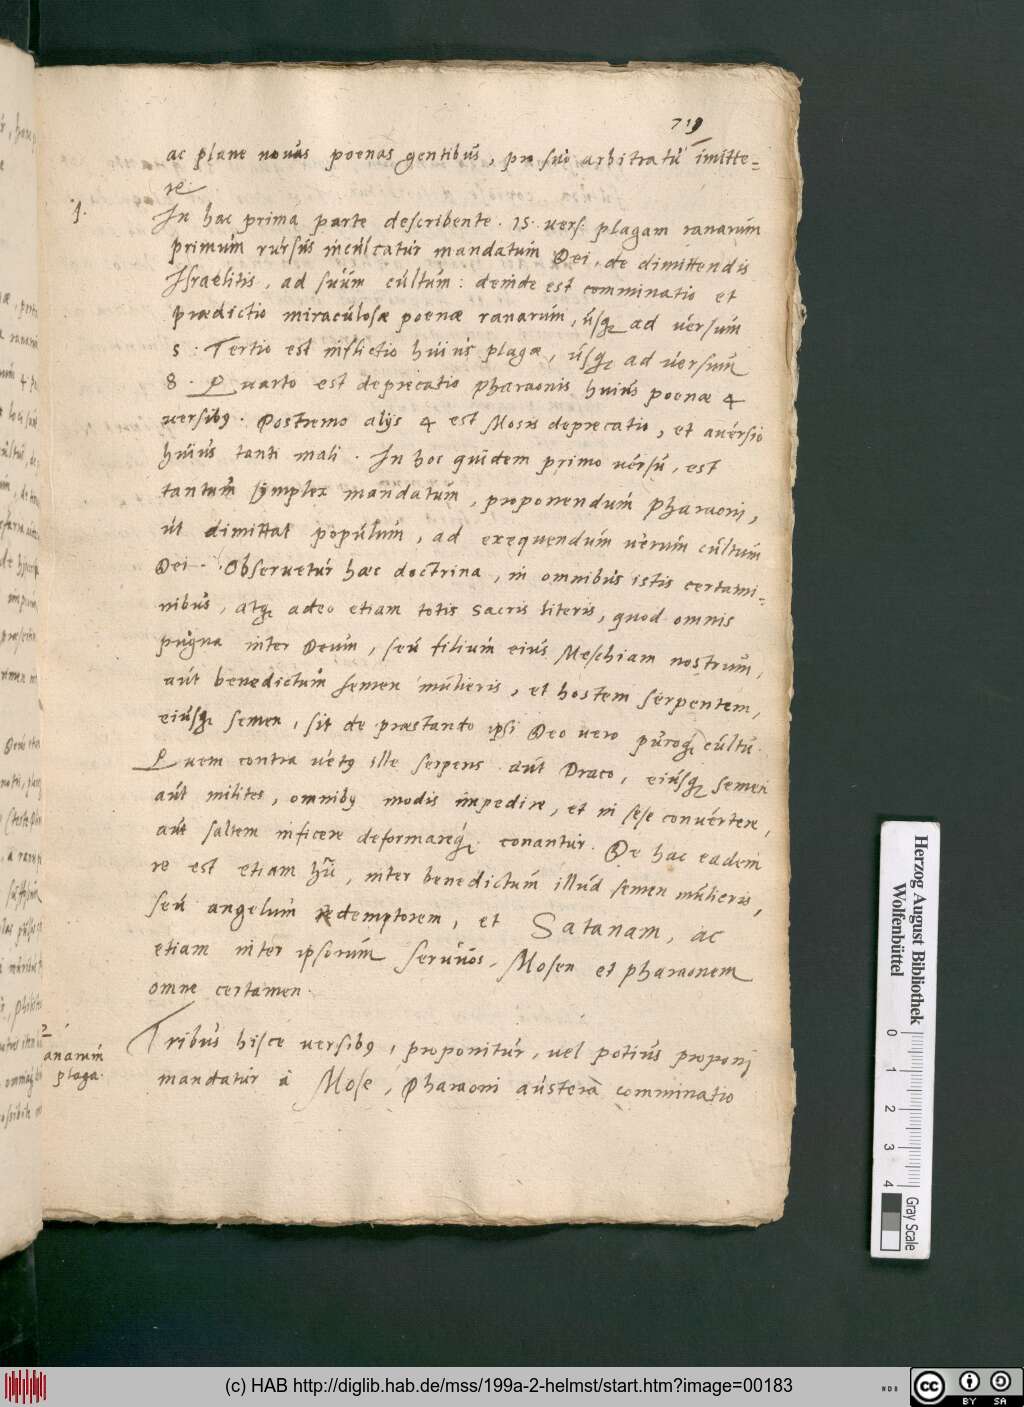 719
ac plane novas poenas gentibus, pro suo arbitratu imitte=
re.
1.
In hac prima parte describente. 15. vers: plagam ranarum
primum rursus inculcatur mandatum Dei, de dimittendis
Israelitis, ad suum cultum: deinde est comminatio et
praedictio miraculosae poenae ranarum, usq; ad versum
5: Tertio est inflictio huius plagae, usq; ad versum
8. Quarto est deprecatio pharaonis huius poenae 4
versibus. Postremo alijs 4 est Mosis deprecatio, et aversio
huius tanti mali. In hoc quidem primo versu, est
tantum symplex mandatum, proponendum pharaoni,
ut dimittat populum, ad exequendum verum cultum
Dei. Observetur haec doctrina, in omnibus istis certami=
nibus, atq; adeo etiam totis sacris literis, quod omnis
pugna inter Deum, seu filium eius Meschiam nostrum,
aut benedictum semen mulieris, et hostem serpentem,
eiusq; semen, sit de praestando ipsi Deo vero puroq; cultu.
Quem contra vetus ille serpens aut Draco, eiusq; semen
aut milites, omnibus modis impedire, et in sese convertere,
aut saltem inficere deformareq; conantur. De hac eadem
re est etiam hu, inter benedictum illud semen mulieris,
seu angelum redemptorem, et Satanam, ac
etiam inter ipsorum servuos, Mosen et pharaonem
omne certamen.
2
anarum
plaga.
Tribus hisce versibus, proponitur, vel potius proponi
mandatur à Mose, Pharaoni austera comminatio
Herzog August Bibliothek
Wolfenbüttel
0 1 2 3 4
Gray Scale
(c) HAB http://diglib.hab.de/mss/199a-2-helmst/start.htm?image=00183
cc BY SA